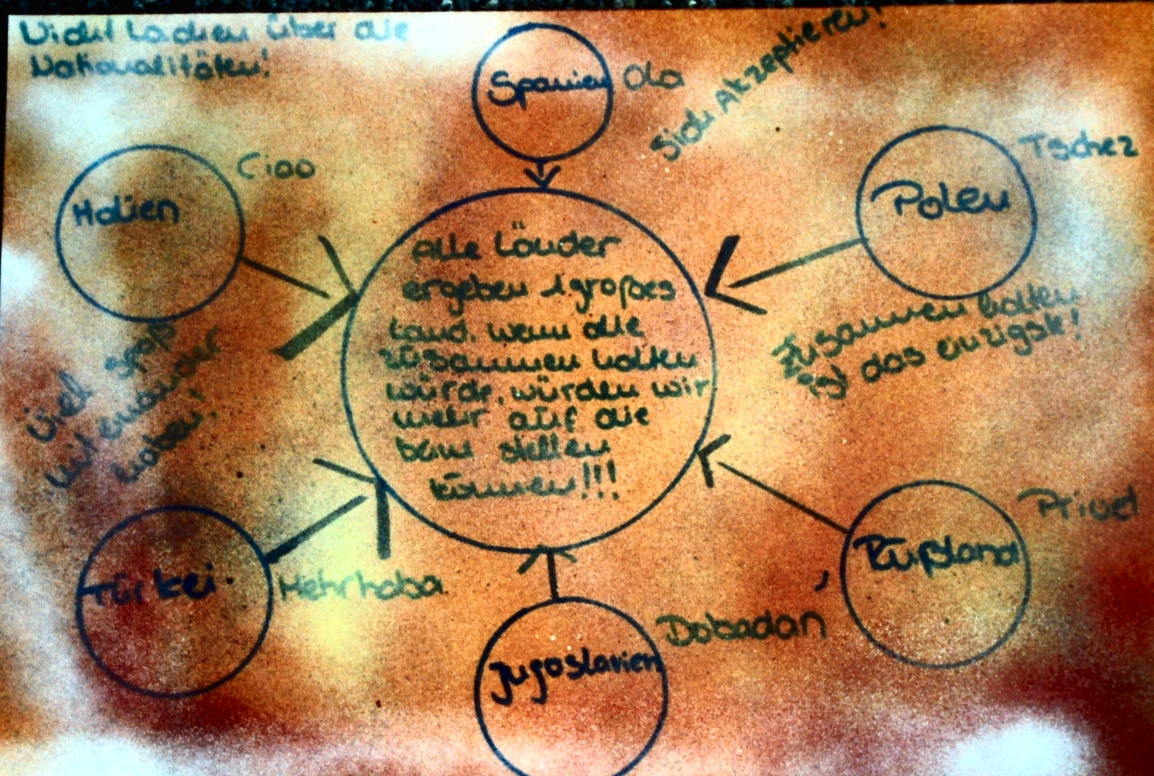 Nicht Lachen über die
Nationalitäten!
Spanien
Ola
Sich Akzeptieren!
Italien
Ciao
Polen
Tschez
Alle Länder
ergeben 1 großes
Land. wenn alle
zusammen halten
würde, würden wir
mehr auf die
bein stellen
können!!!
Viel Spaß
mit einander
haben!
Zusammen halten
ist das einzigste!
Türkei
Mehrhaba
Jugoslavien
Dobadan
Rußland
Privel